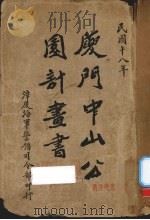 民國十八年
廈門中山公
園計畫書
漳廈海軍警備司令部印行